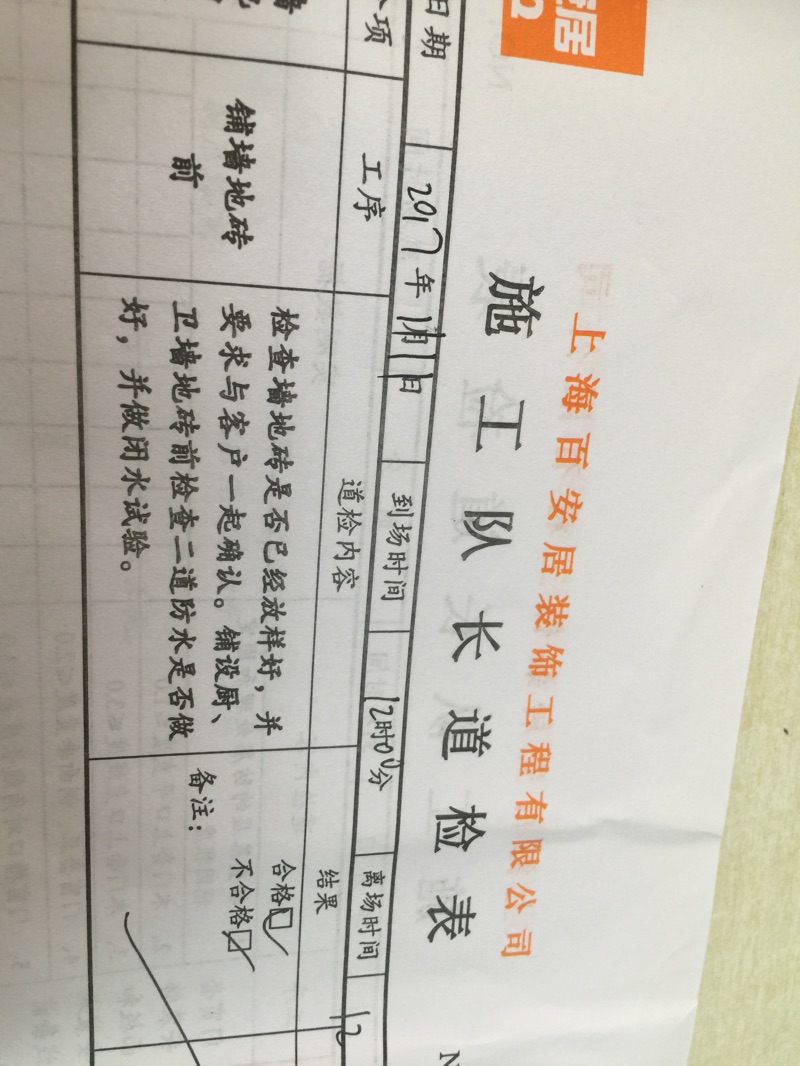 居
上海百安居装饰工程有限公司
施工队长道检表
N
日期 2017年1月11日 到场时间 12时00分 离场时间 12
项 工序 道检内容 结果
铺墙地砖
前
检查墙地砖是否已经放样好，并
要求与客户一起确认。铺设厨、
卫墙地砖前检查二道防水是否做
好，并做闭水试验。
合格☑
不合格☑
备注：